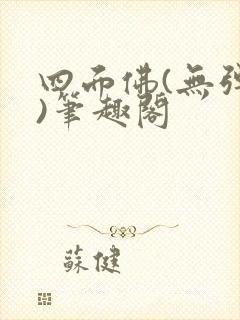 四而佛(無彈
)筆趣閣
蘇健